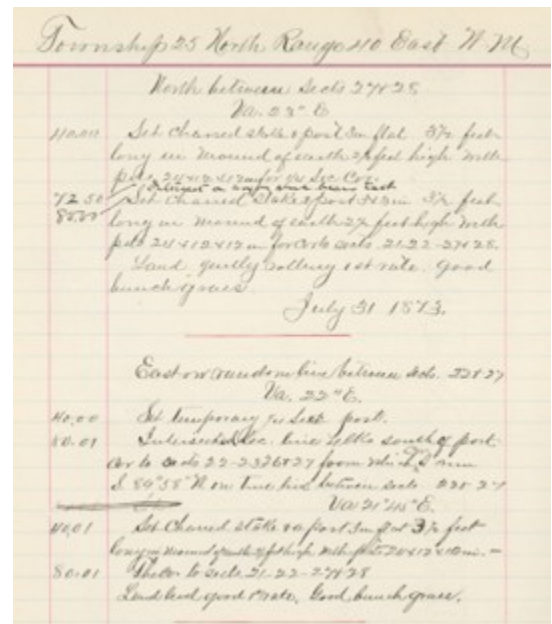 Township 25 North Range 40 East W. M.
North between Secs 27 & 28
Va. 22° E
40.00 Set charred stake & post 3 in flat 3½ feet
long in mound of earth 2½ feet high with
pits 24 x 12 x 12 in for ¼ Sec Cor.
72.50
80.00 Set Charred Stake & post 3 x 3 in 3½ feet
long in mound of earth 2½ feet high with
pits 24 x 12 x 12 in for cor to secs. 21-22-27 & 28.
Land gently rolling 1st rate. Good
bunch grass.
July 31 1873.
East on random line between Secs. 22 & 27
Va. 22° E.
40.00 Set temporary ¼ Sec post.
80.01 Intersected Sec. line lks south of post
cor to secs 22-23 26 & 27 from which I run
S. 89° 58' W. on true line between secs 22 & 27
Va 21° 45' E.
40.01 Set Charred stake & post 3 in 3½ feet
long in mound of earth high with pits
80.01 The cor to secs. 21-22-27 & 28
Land good 1st rate. Good bunch grass.